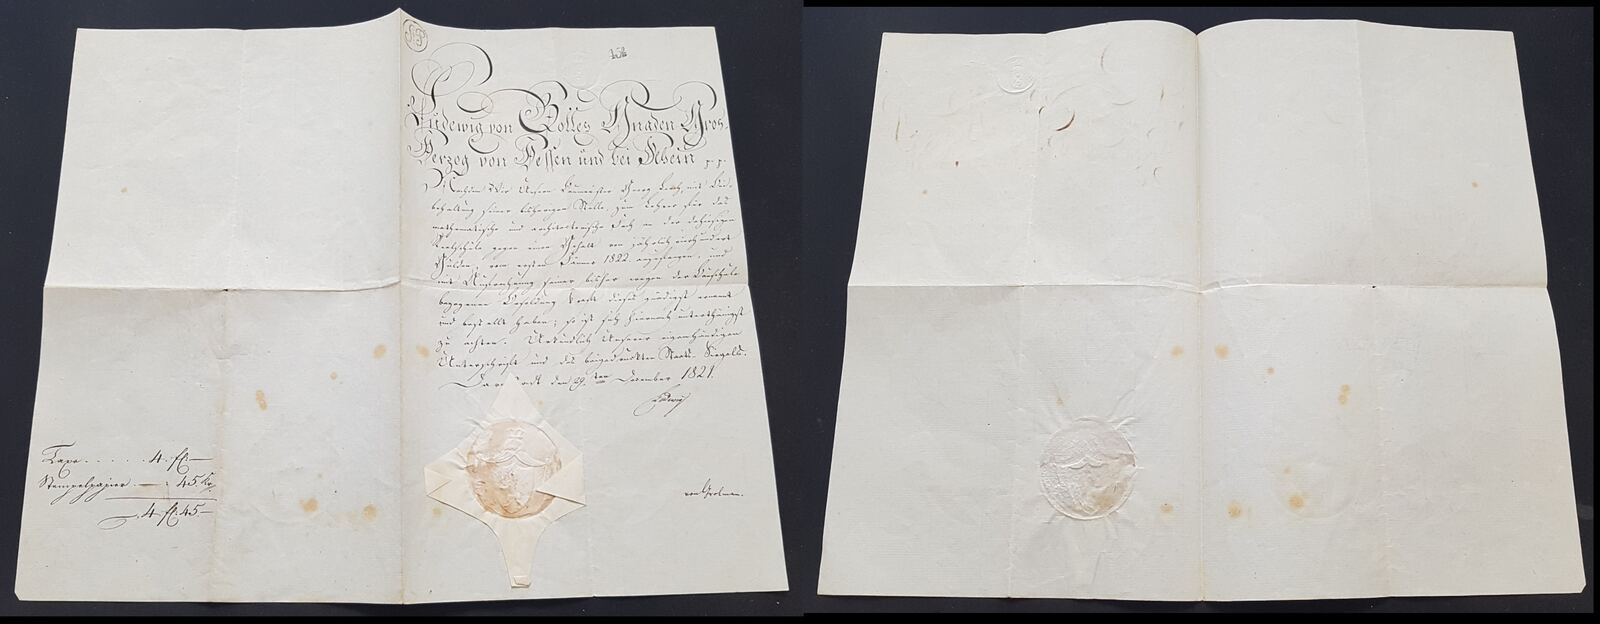 Ludewig von Gottes Gnaden Gros-
Herzog von Hessen und bei Rhein p. p.
Nachdem Wir Unsern Baumeister Georg mit Bei-
behaltung seiner bisherigen Stelle, zum Lehrer für das
mathematische und architectonische Fach an der dahiesigen
Realschule gegen einen Gehalt von jährlich vierhundert
Gulden, vom ersten Jänner 1822. angefangen, und
mit seiner bisher wegen der Bauschule
bezogenen Besoldung Kraft dieses gnädigst ernannt
und bestellt haben; so ist sich hiernach unterthänigst
zu achten. Urkundlich Unserer eigenhändigen
Unterschrift und des beigedruckten Staats-Siegels.
Darmstadt den 29.ten December 1821.
Ludewig
von Grolman.
Taxe ..... 4. fl. —
Stempelpapier — : 45 Kr.
4. fl. 45 —